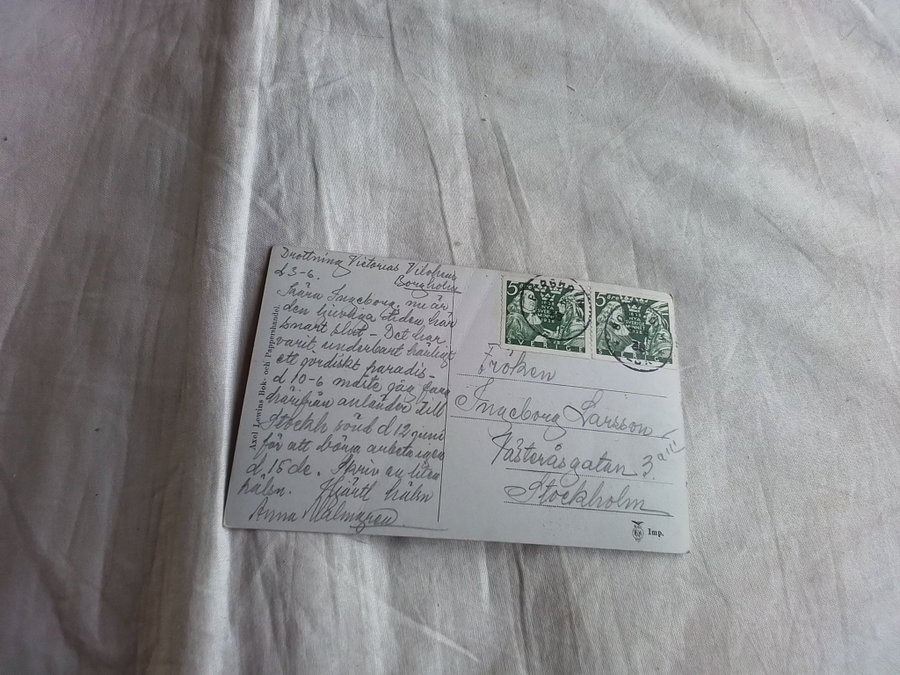 Drottning Victorias Vilohem
Borgholm
d 3-6.
Kära Ingeborg, nu är
den ljuvliga tiden här
snart slut - Det har
varit underbart härligt
ett jordiskt paradis -
d 10-6 måste jag fara
härifrån anländer till
Stockh d 12 juni
för att börja arbeta igen
d. 15 de. Skriv en liten
hälsn. Hjärtl hälsn
Anna Malmgren
Axel Lewins Bok- och Pappershandel
5
5
Fröken
Ingeborg Larsson
Västeråsgatan 3
Stockholm
Imp.